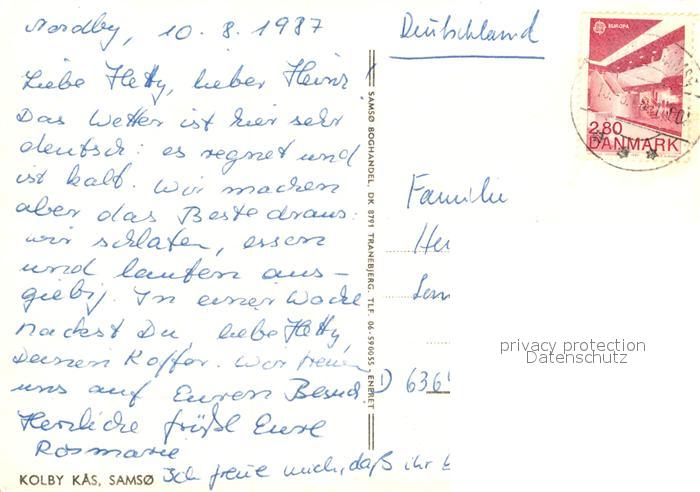 Nordby, 10.8.1987
Liebe Hetty, lieber Heinz!
Das Wetter ist hier sehr
deutsch: es regnet und
ist kalt. Wir machen
aber das Beste draus:
wir schlafen, essen
und laufen aus-
giebig. In einer Woche
packst Du, liebe Hetty,
Deinen Koffer. Wir freuen
uns auf Euren Besuch.
Herzliche Grüße Eure
Rosmarie
Ich freue mich, daß ihr
KOLBY KÅS, SAMSØ
SAMSØ BOGHANDEL, DK 8791 TRANEBJERG. TLF. 06-596055 - ENERET
Deutschland
EUROPA
2.80
DANMARK
Familie
D 636
privacy protection
Datenschutz